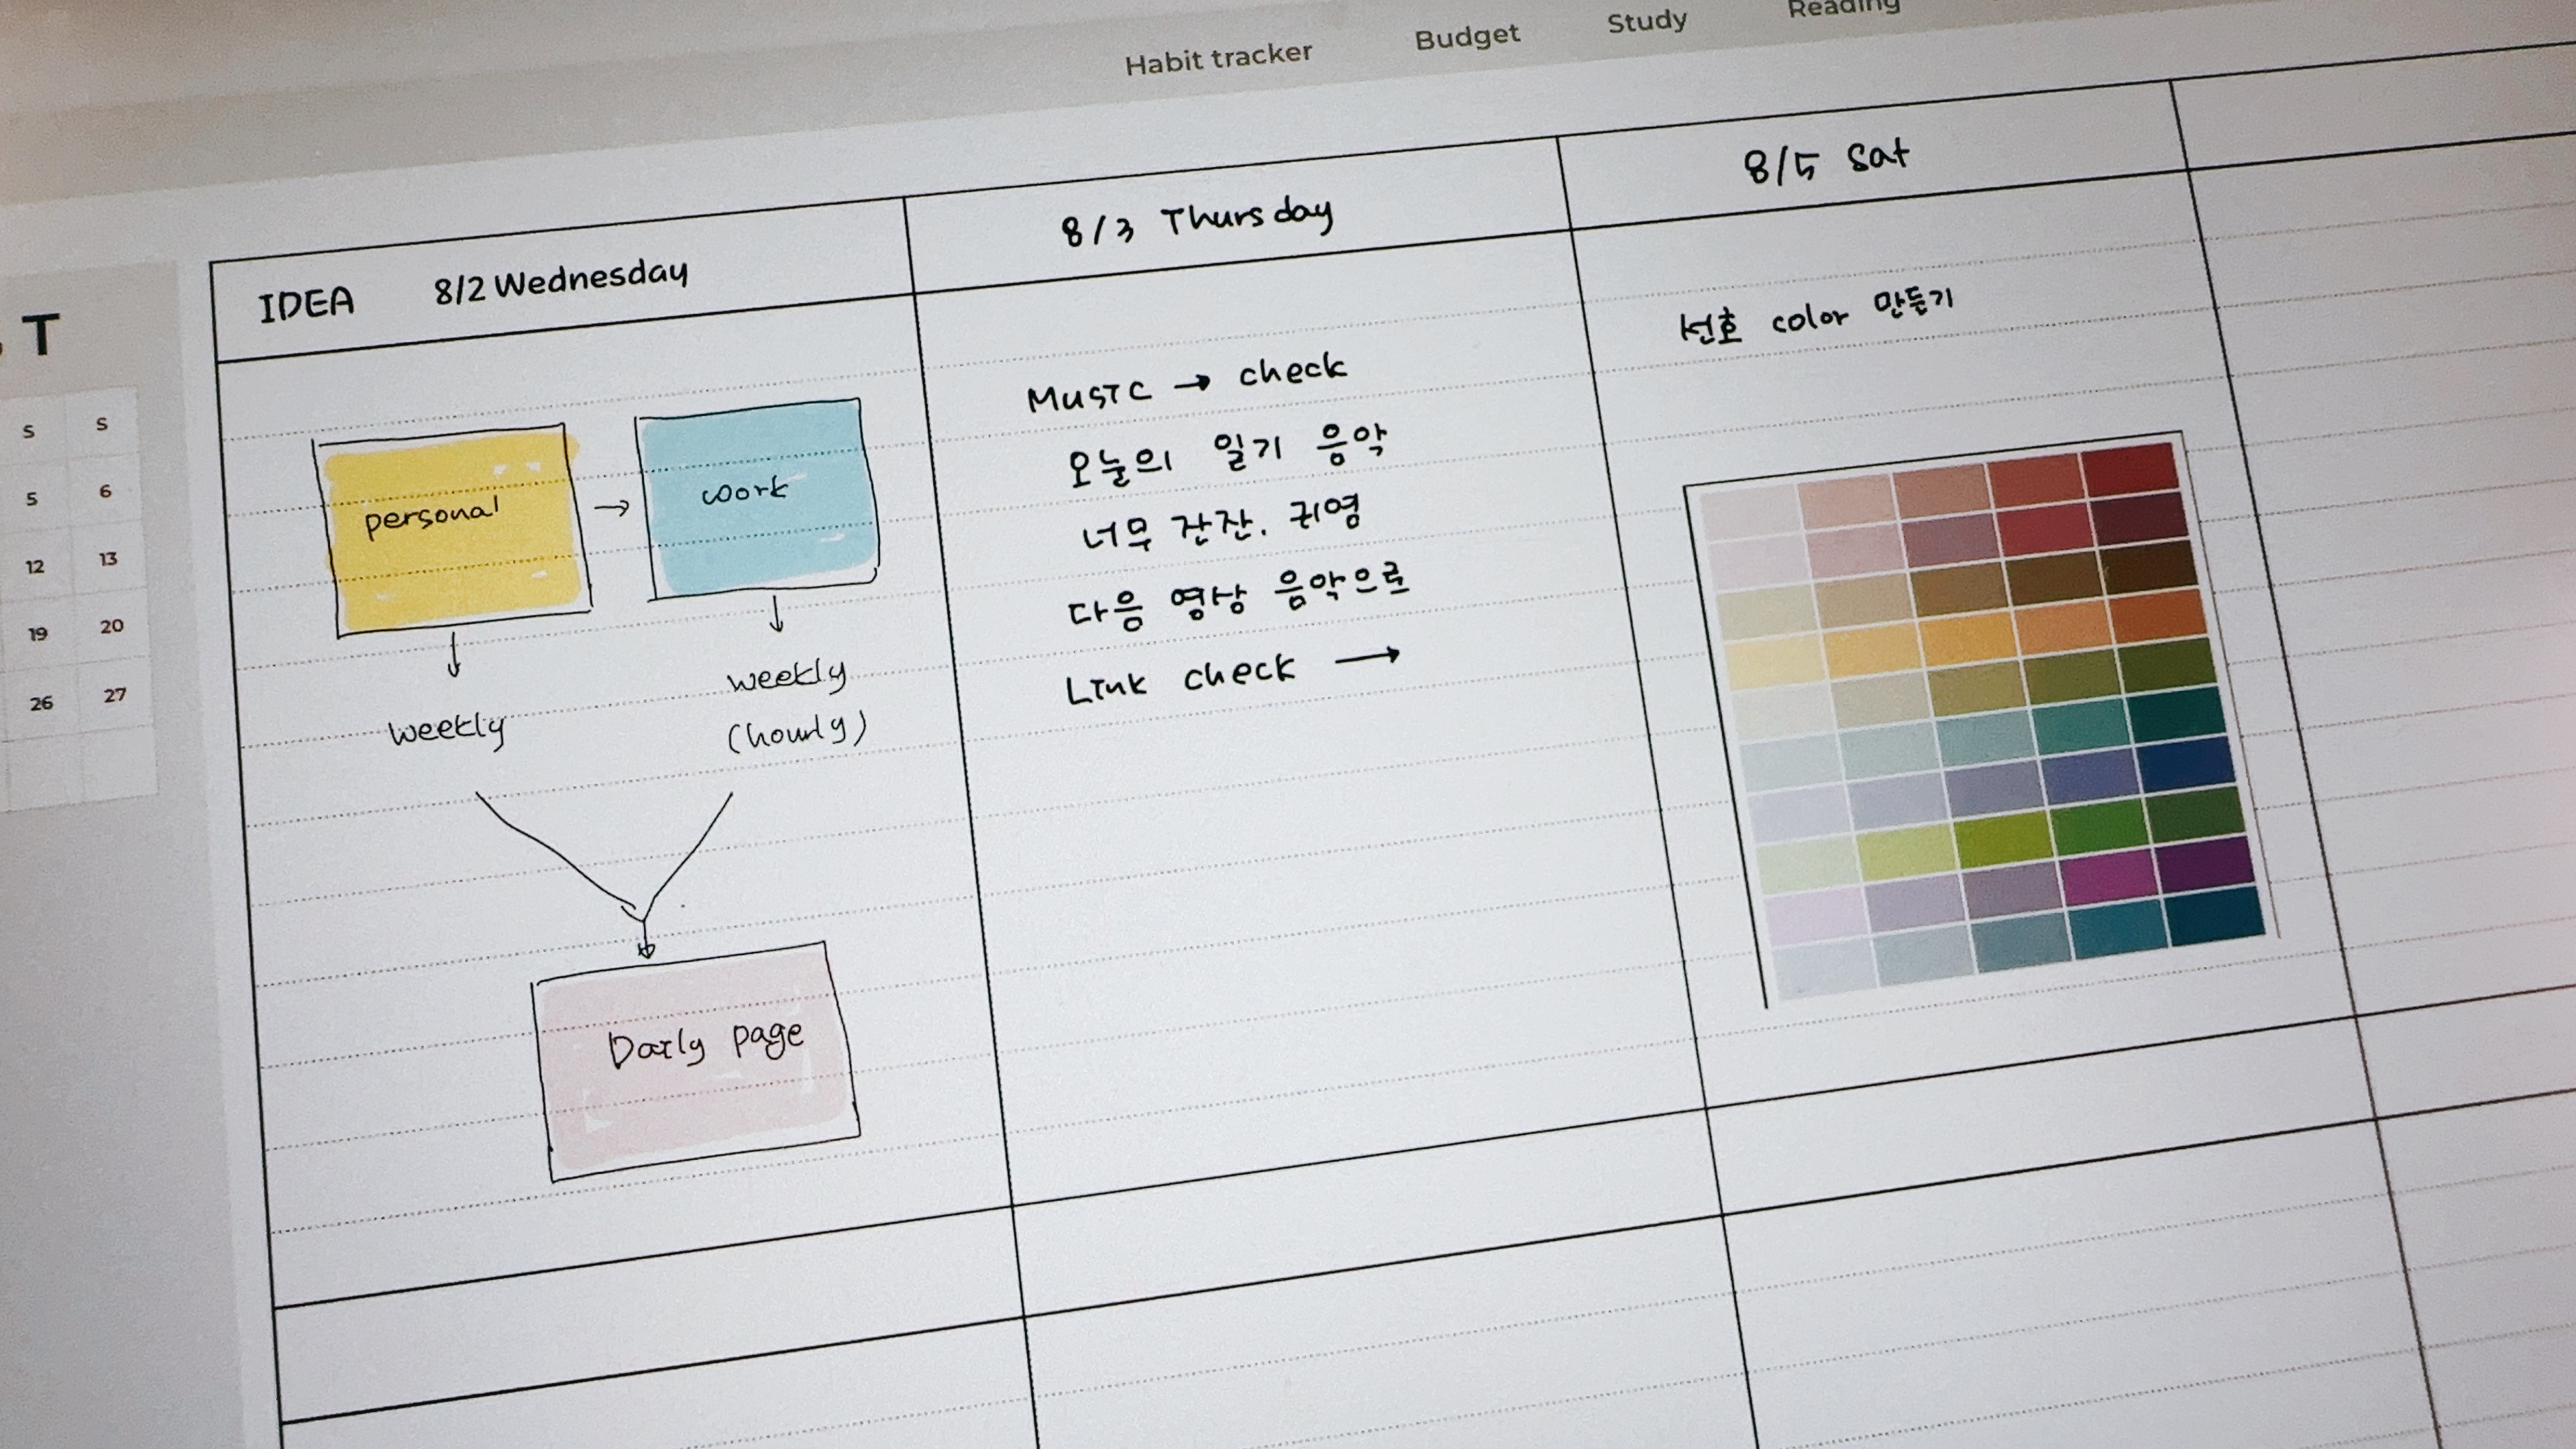 Habit tracker Budget Study Reading
T
S S
5 6
12 13
19 20
26 27
IDEA 8/2 Wednesday
personal → work
↓ ↓
weekly weekly
(hourly)
Daily page
8/3 Thursday
Music → check
오늘의 일기 음악
너무 잔잔. 귀영
다음 영상 음악으로
Link check →
8/5 Sat
선호 color 만들기